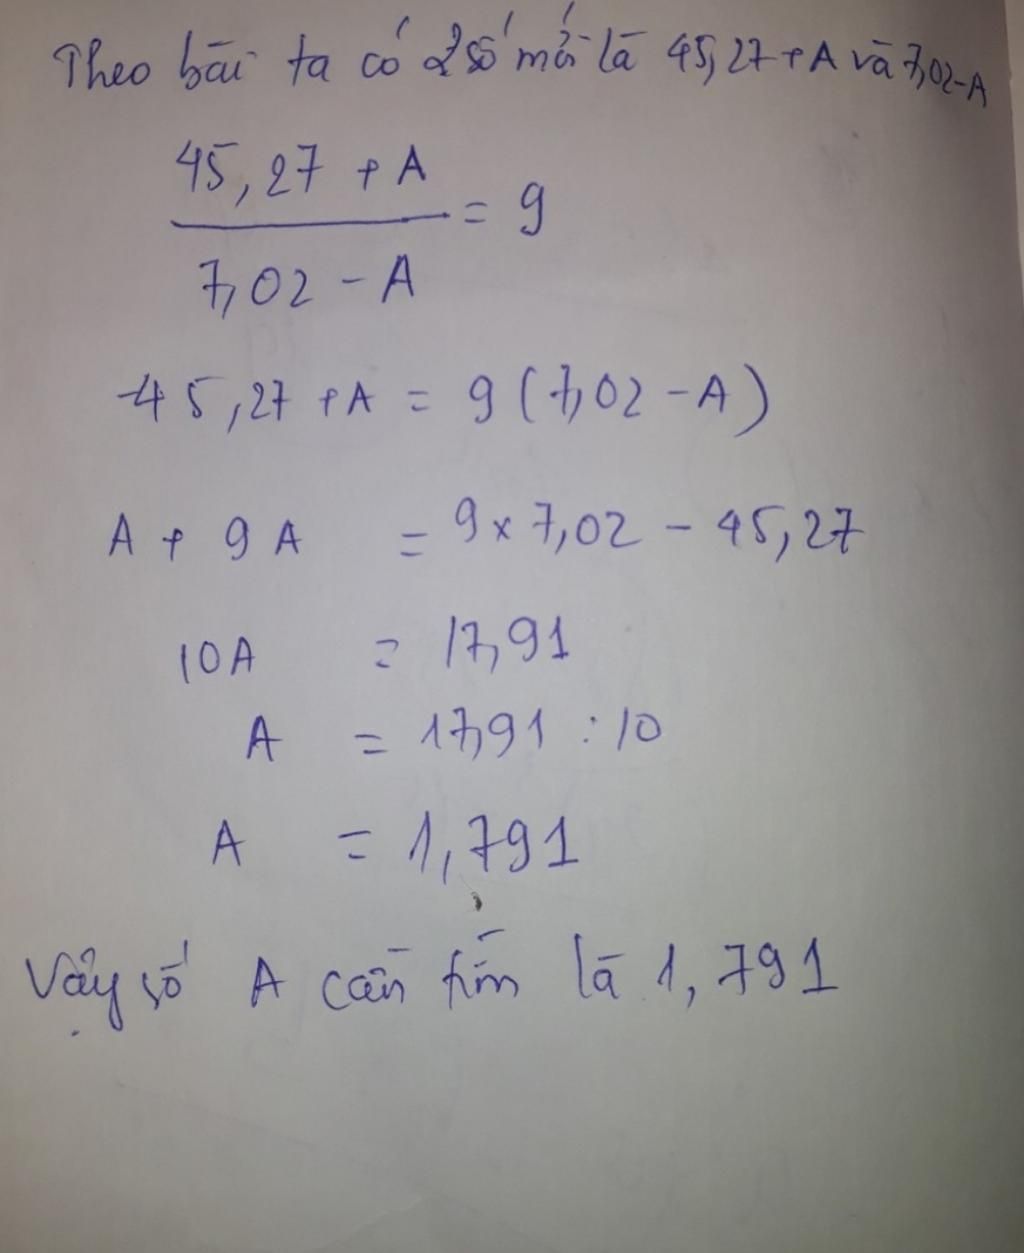 Theo bài ta có 2 số mới là 45,27 + A và 7,02 - A
45,27 + A
= 9
7,02 - A
45,27 + A = 9 (7,02 - A)
A + 9 A = 9 x 7,02 - 45,27
10A = 17,91
A = 17,91 : 10
A = 1,791
Vậy số A cần tìm là 1,791